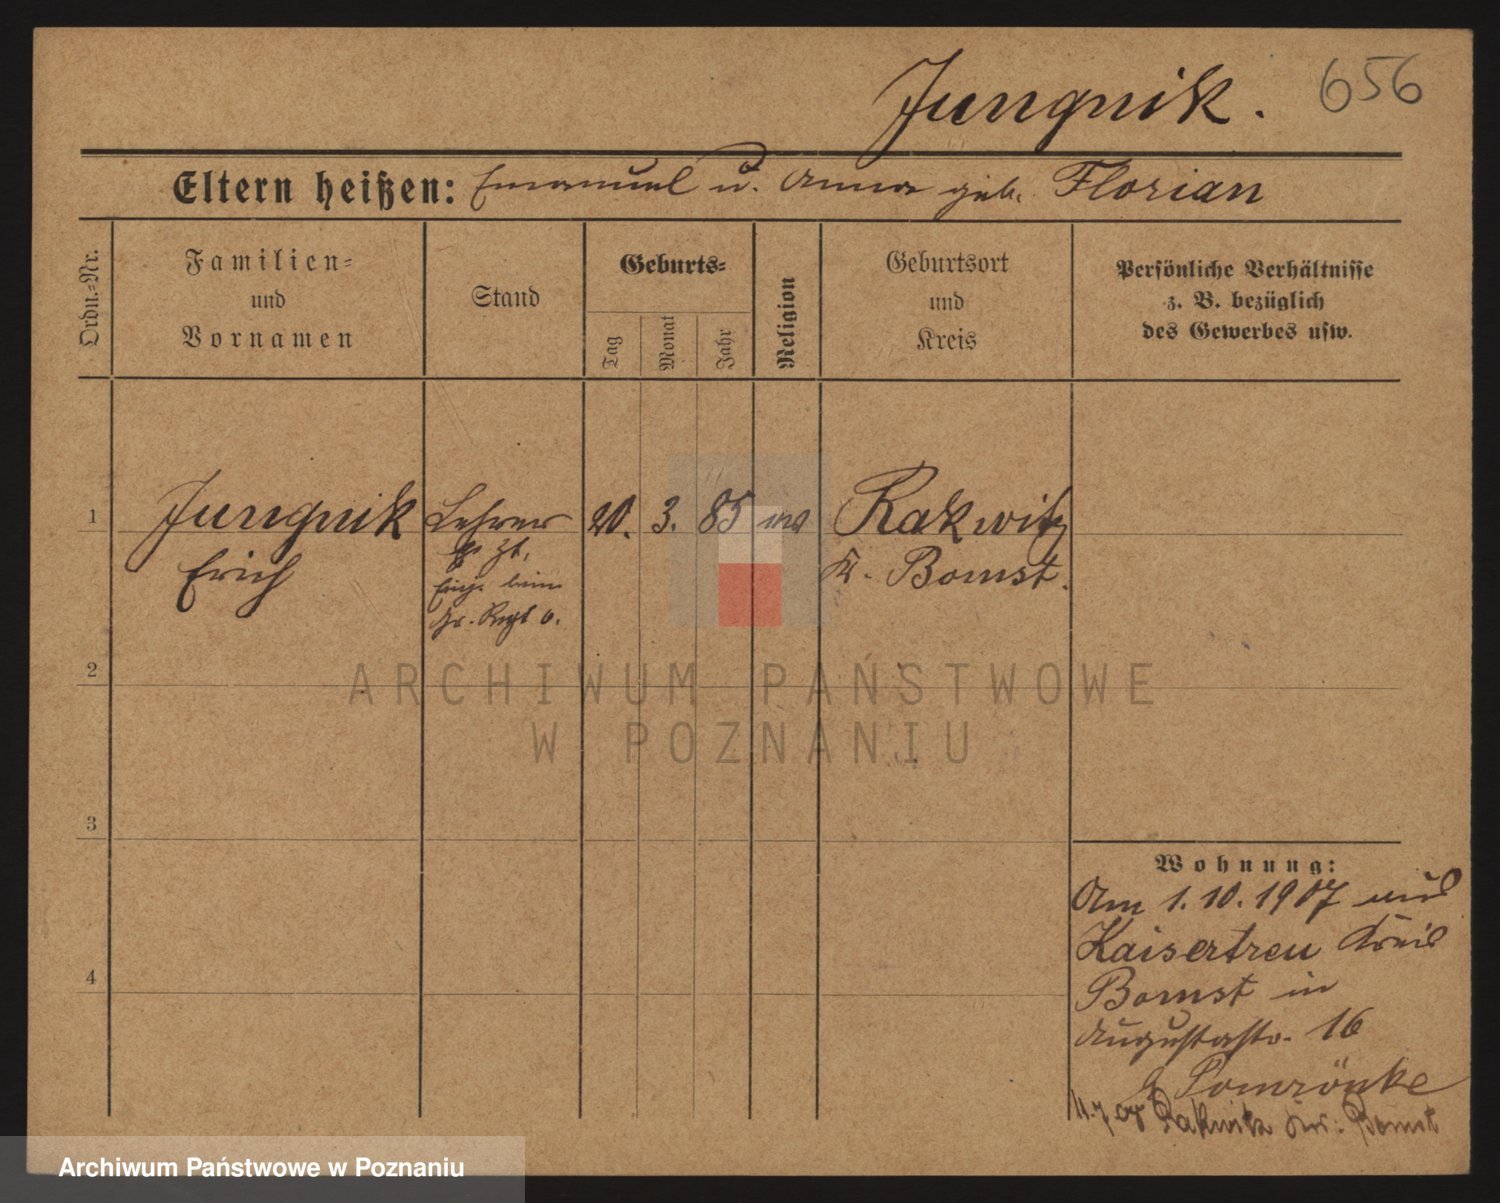 Jungnik. 656
Eltern heißen: Emanuel u. Anna geb. Florian
Ordn.-Nr.
Familien-
und
Vornamen
Stand
Geburts-
Tag
Monat
Jahr
Religion
Geburtsort
und
Kreis
Persönliche Verhältnisse
z. B. bezüglich
des Gewerbes usw.
1 Jungnik Lehrer 20. 3. 85 Rakwitz
Erich z Zt. K. Bomst.
beim
Gr. Regt 6.
2
3
4
Wohnung:
Am 1. 10. 1907 aus
Kaisertreu Kreis
Bomst in
Augustastr. 16
Pomrönke
Rakwitz Kr. Bomst
ARCHIWUM PAŃSTWOWE
W POZNANIU
Archiwum Państwowe w Poznaniu